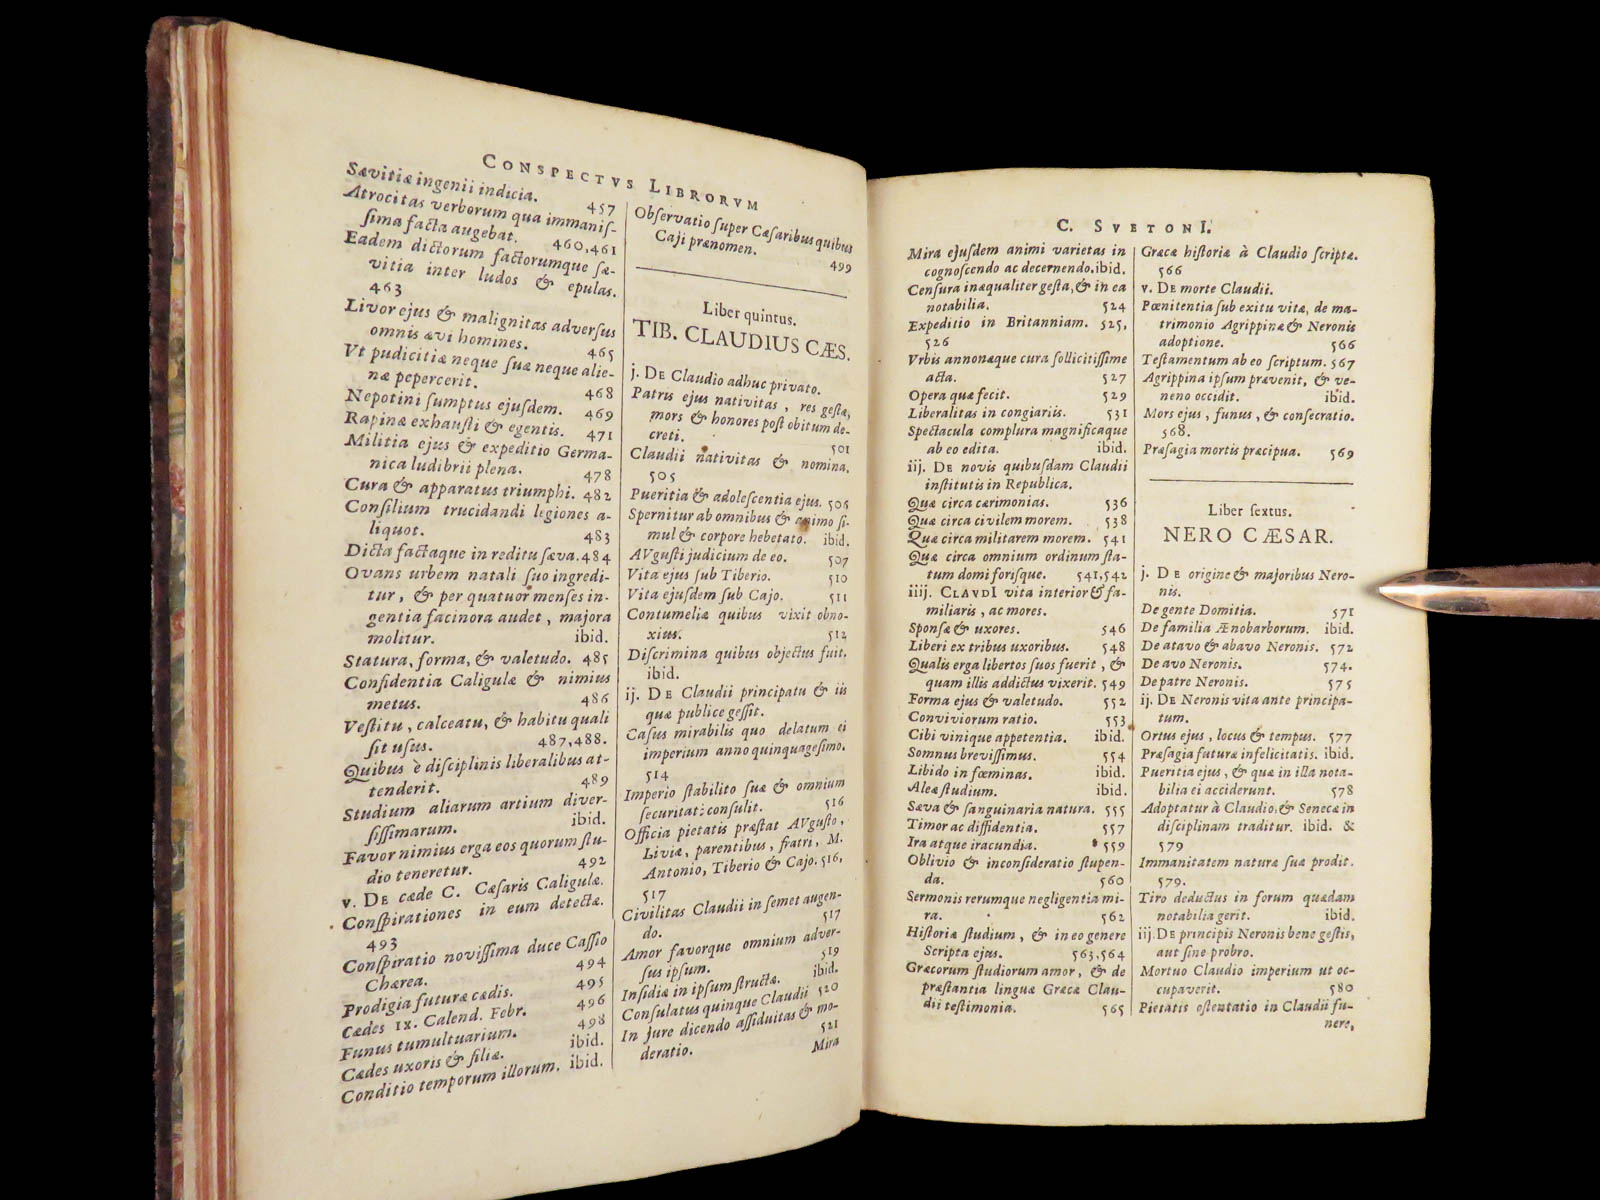 CONSPECTVS LIBRORVM
Sævitiæ ingenii indicia. 457
Atrocitas verborum qua immaniſ-
ſima facta augebat. 460,461
Eadem dictorum factorumque ſæ-
vitia inter ludos & epulas.
463
Livor ejus & malignitas adverſus
omnis ævi homines. 465
Vt pudicitiæ neque ſuæ neque alie-
næ pepercerit. 468
Nepotini ſumptus ejuſdem. 469
Rapinæ exhauſti & egentis. 471
Militia ejus & expeditio Germa-
nica ludibrii plena. 478
Cura & apparatus triumphi. 482
Conſilium trucidandi legiones a-
liquot. 483
Dicta factaque in reditu ſæva. 484
Ovans urbem natali ſuo ingredi-
tur, & per quatuor menſes in-
gentia facinora audet, majora
molitur. ibid.
Statura, forma, & valetudo. 485
Confidentia Caligulæ & nimius
metus. 486
Veſtitu, calceatu, & habitu quali
ſit uſus. 487,488.
Quibus è diſciplinis liberalibus at-
tenderit. 489
Studium aliarum artium diver-
ſiſſimarum. ibid.
Favor nimius erga eos quorum ſtu-
dio teneretur. 492
v. DE cæde C. Cæſaris Caligulæ.
Conſpirationes in eum detectæ.
493
Conſpiratio noviſſima duce Caſſio
Chærea. 494
Prodigia futuræ cædis. 495
Cædes IX. Calend. Febr. 496
Funus tumultuarium. 498
Cædes uxoris & filiæ. ibid.
Conditio temporum illorum. ibid.
Obſervatio ſuper Cæſaribus quibus
Caji prænomen. 499
Liber quintus.
TIB. CLAUDIUS CÆS.
j. DE Claudio adhuc privato.
Patris ejus nativitas, res geſtæ,
mors & honores poſt obitum de-
creti. 501
Claudii nativitas & nomina.
505
Pueritia & adoleſcentia ejus. 506
Spernitur ab omnibus & animo ſi-
mul & corpore hebetato. ibid.
AVguſti judicium de eo. 507
Vita ejus ſub Tiberio. 510
Vita ejuſdem ſub Cajo. 511
Contumeliæ quibus vixit obno-
xius. 512
Diſcrimina quibus objectus fuit.
ibid.
ij. DE Claudii principatu & iis
quæ publice geſſit.
Caſus mirabilis quo delatum ei
imperium anno quinquageſimo.
514
Imperio ſtabilito ſuæ & omnium
ſecuritati conſulit. 516
Officia pietatis præſtat AVguſto,
Liviæ, parentibus, fratri, M.
Antonio, Tiberio & Cajo. 516,
517
Civilitas Claudii in ſemet augen-
do. 517
Amor favorque omnium adver-
ſus ipſum. 519
Inſidiæ in ipſum ſtructæ. ibid.
Conſulatus quinque Claudii 520
In jure dicendo aſſiduitas & mo-
deratio. 521
Mira
C. SVETONI.
Mira ejuſdem animi varietas in
cognoſcendo ac decernendo. ibid.
Cenſura inæqualiter geſta, & in ea
notabilia. 524
Expeditio in Britanniam. 525,
526
Vrbis annonæque cura ſollicitiſſime
acta. 527
Opera quæ fecit. 529
Liberalitas in congiariis. 531
Spectacula complura magnificaque
ab eo edita. ibid.
iij. DE novis quibuſdam Claudii
inſtitutis in Republica.
Quæ circa cærimonias. 536
Quæ circa civilem morem. 538
Quæ circa militarem morem. 541
Quæ circa omnium ordinum ſta-
tum domi foriſque. 541,542
iiij. CLAVDI vita interior & fa-
miliaris, ac mores.
Sponſæ & uxores. 546
Liberi ex tribus uxoribus. 548
Qualis erga libertos ſuos fuerit, &
quam illis addictus vixerit. 549
Forma ejus & valetudo. 552
Conviviorum ratio. 553
Cibi vinique appetentia. ibid.
Somnus breviſſimus. 554
Libido in fœminas. ibid.
Aleæ ſtudium. ibid.
Sæva & ſanguinaria natura. 555
Timor ac diffidentia. 557
Ira atque iracundia. 559
Oblivio & inconſideratio ſtupen-
da. 560
Sermonis rerumque negligentia mi-
ra. 562
Hiſtoriæ ſtudium, & in eo genere
Scripta ejus. 563,564
Græcorum ſtudiorum amor, & de
præſtantia linguæ Græcæ Clau-
dii teſtimonia. 565
Græcæ hiſtoriæ à Claudio ſcriptæ.
566
v. DE morte Claudii.
Pœnitentia ſub exitu vitæ, de ma-
trimonio Agrippinæ & Neronis
adoptione. 566
Teſtamentum ab eo ſcriptum. 567
Agrippina ipſum prævenit, & ve-
neno occidit. ibid.
Mors ejus, funus, & conſecratio.
568.
Præſagia mortis præcipua. 569
Liber ſextus.
NERO CÆSAR.
j. DE origine & majoribus Nero-
nis.
De gente Domitia. 571
De familia Ænobarborum. ibid.
De atavo & abavo Neronis. 572
De avo Neronis. 574.
De patre Neronis. 575
ij. DE Neronis vita ante principa-
tum.
Ortus ejus, locus & tempus. 577
Præſagia futuræ infelicitatis. ibid.
Pueritia ejus, & quæ in illa nota-
bilia ei acciderunt. 578
Adoptatur à Claudio, & Senecæ in
diſciplinam traditur. ibid. &
579
Immanitatem naturæ ſuæ prodit.
579.
Tiro deductus in forum quædam
notabilia gerit. ibid.
iij. DE principis Neronis bene geſtis,
aut ſine probro.
Mortuo Claudio imperium ut oc-
cupaverit. 580
Pietatis oſtentatio in Claudii fu-
nere,